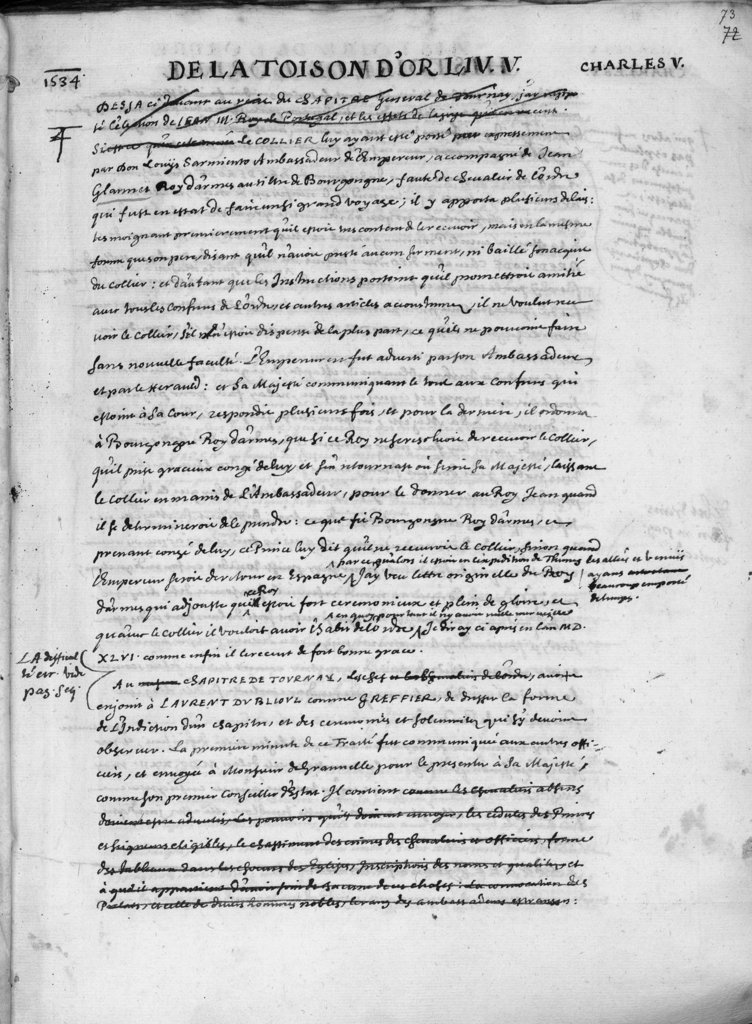 73
72
1534.
DE LA TOISON D'OR LIV. V.
CHARLES V.
DESJA cy devant au recit du CHAPITRE General de Tournay, j'ay
té l'élection de JEAN III. Roy de Portugal, et les
le COLLIER luy ayant esté porté
par Don Louijs Sarmiento Ambassadeur de l'Empereur, accompagné de Jean
Glarmet Roy d'armes au tiltre de Bourgongne, faute de chevalier de l'ordre
qui fust en estat de faire un si grand voyage; il y apporta plusieurs delais:
tesmoignant premierement qu'il estoit tres content de le recevoir, mais en la mesme
forme que son pere, disant qu'il n'avoit presté aucun serment, ni baillé son acquit
du collier: et d'autant que les Instructions portoient qu'il promettroit amitié
avec tous les Confreres de l'ordre, et autres articles accoustumez, il ne voulut rece
voir le Collier, s'il n'estoit dispensé de la plus part, ce qu'ils ne pouvoient faire
sans nouvelle faculté. L'Empereur en fut adverti par son Ambassadeur,
et par le Herauld: et Sa Majesté communiquant le tout aux Confreres qui
estoint à sa Cour, respondit plusieurs fois, et pour la derniere, il ordonna
à Bourgongne Roy d'armes, que si ce Roy ne se resolvoit de recevoir le Collier,
qu'il prist gracieux congé de luy, et s'en retournast où seroit Sa Majesté, laissant
le Collier en mains de l'Ambassadeur, pour le donner au Roy Jean quand
il se determineroit de le prendre: ce que fit Bourgongne Roy d'armes, et
prenant congé de luy, ce Prince luy dit qu'il ne recevroit le Collier, sinon quand
par ce qu'alors il estoit en l'expedition de Thunes
l'Empereur seroit de retour en Espagne. J'ay veu lettre originelle du Roy
les allées et venües
ayans
beaucoup emporté
de temps.
ce Roy
d'armes qui adjouste qu'il estoit fort ceremonieux et plein de gloire, et
qu'avec le collier il vouloit avoir l'habit de l'ordre, Je diray ci apres en l'an M.D.
XLVI. comme enfin il le receut de fort bonne grace.
LA difficul
té
pag. seq.
Au CHAPITRE DE TOURNAY, les chefs et de l'ordre, avoit
enjoint à LAURENT DU BLIOUL comme GREFFIER, de dresser la forme
de l'Indiction d'un chapitre, et des ceremonies et solemnitez qui s'y devoient
observer. La premiere minute de ce Traité fut communiqué aux autres offi-
ciers, et envoyée à Monsieur de Granvelle pour le presenter à Sa Majesté,
comme son premier Conseiller d'Estat. Il contient comme les chevaliers absens
doivent estre advertis, les pouvoirs qu'ils doivent envoyer, les cedules des Princes
et seigneurs eligibles, le chastiment des crimes des chevaliers et officiers, forme
des tableaux dans les choeurs des Eglises, Inscriptions des noms et qualitez, et
à qui il appartient d'avoir soin de chacune de ces choses: La convocation des
Prelats, et celle de divers hommes nobles, le rang des ambassadeurs estrangers: